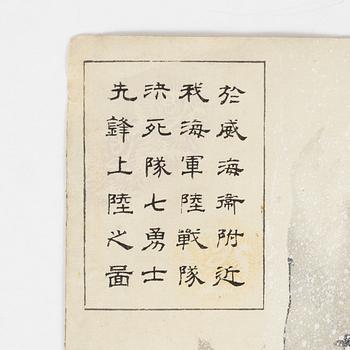 於威海衛附近
我海軍陸戰隊
決死隊七勇士
先鋒上陸之圖